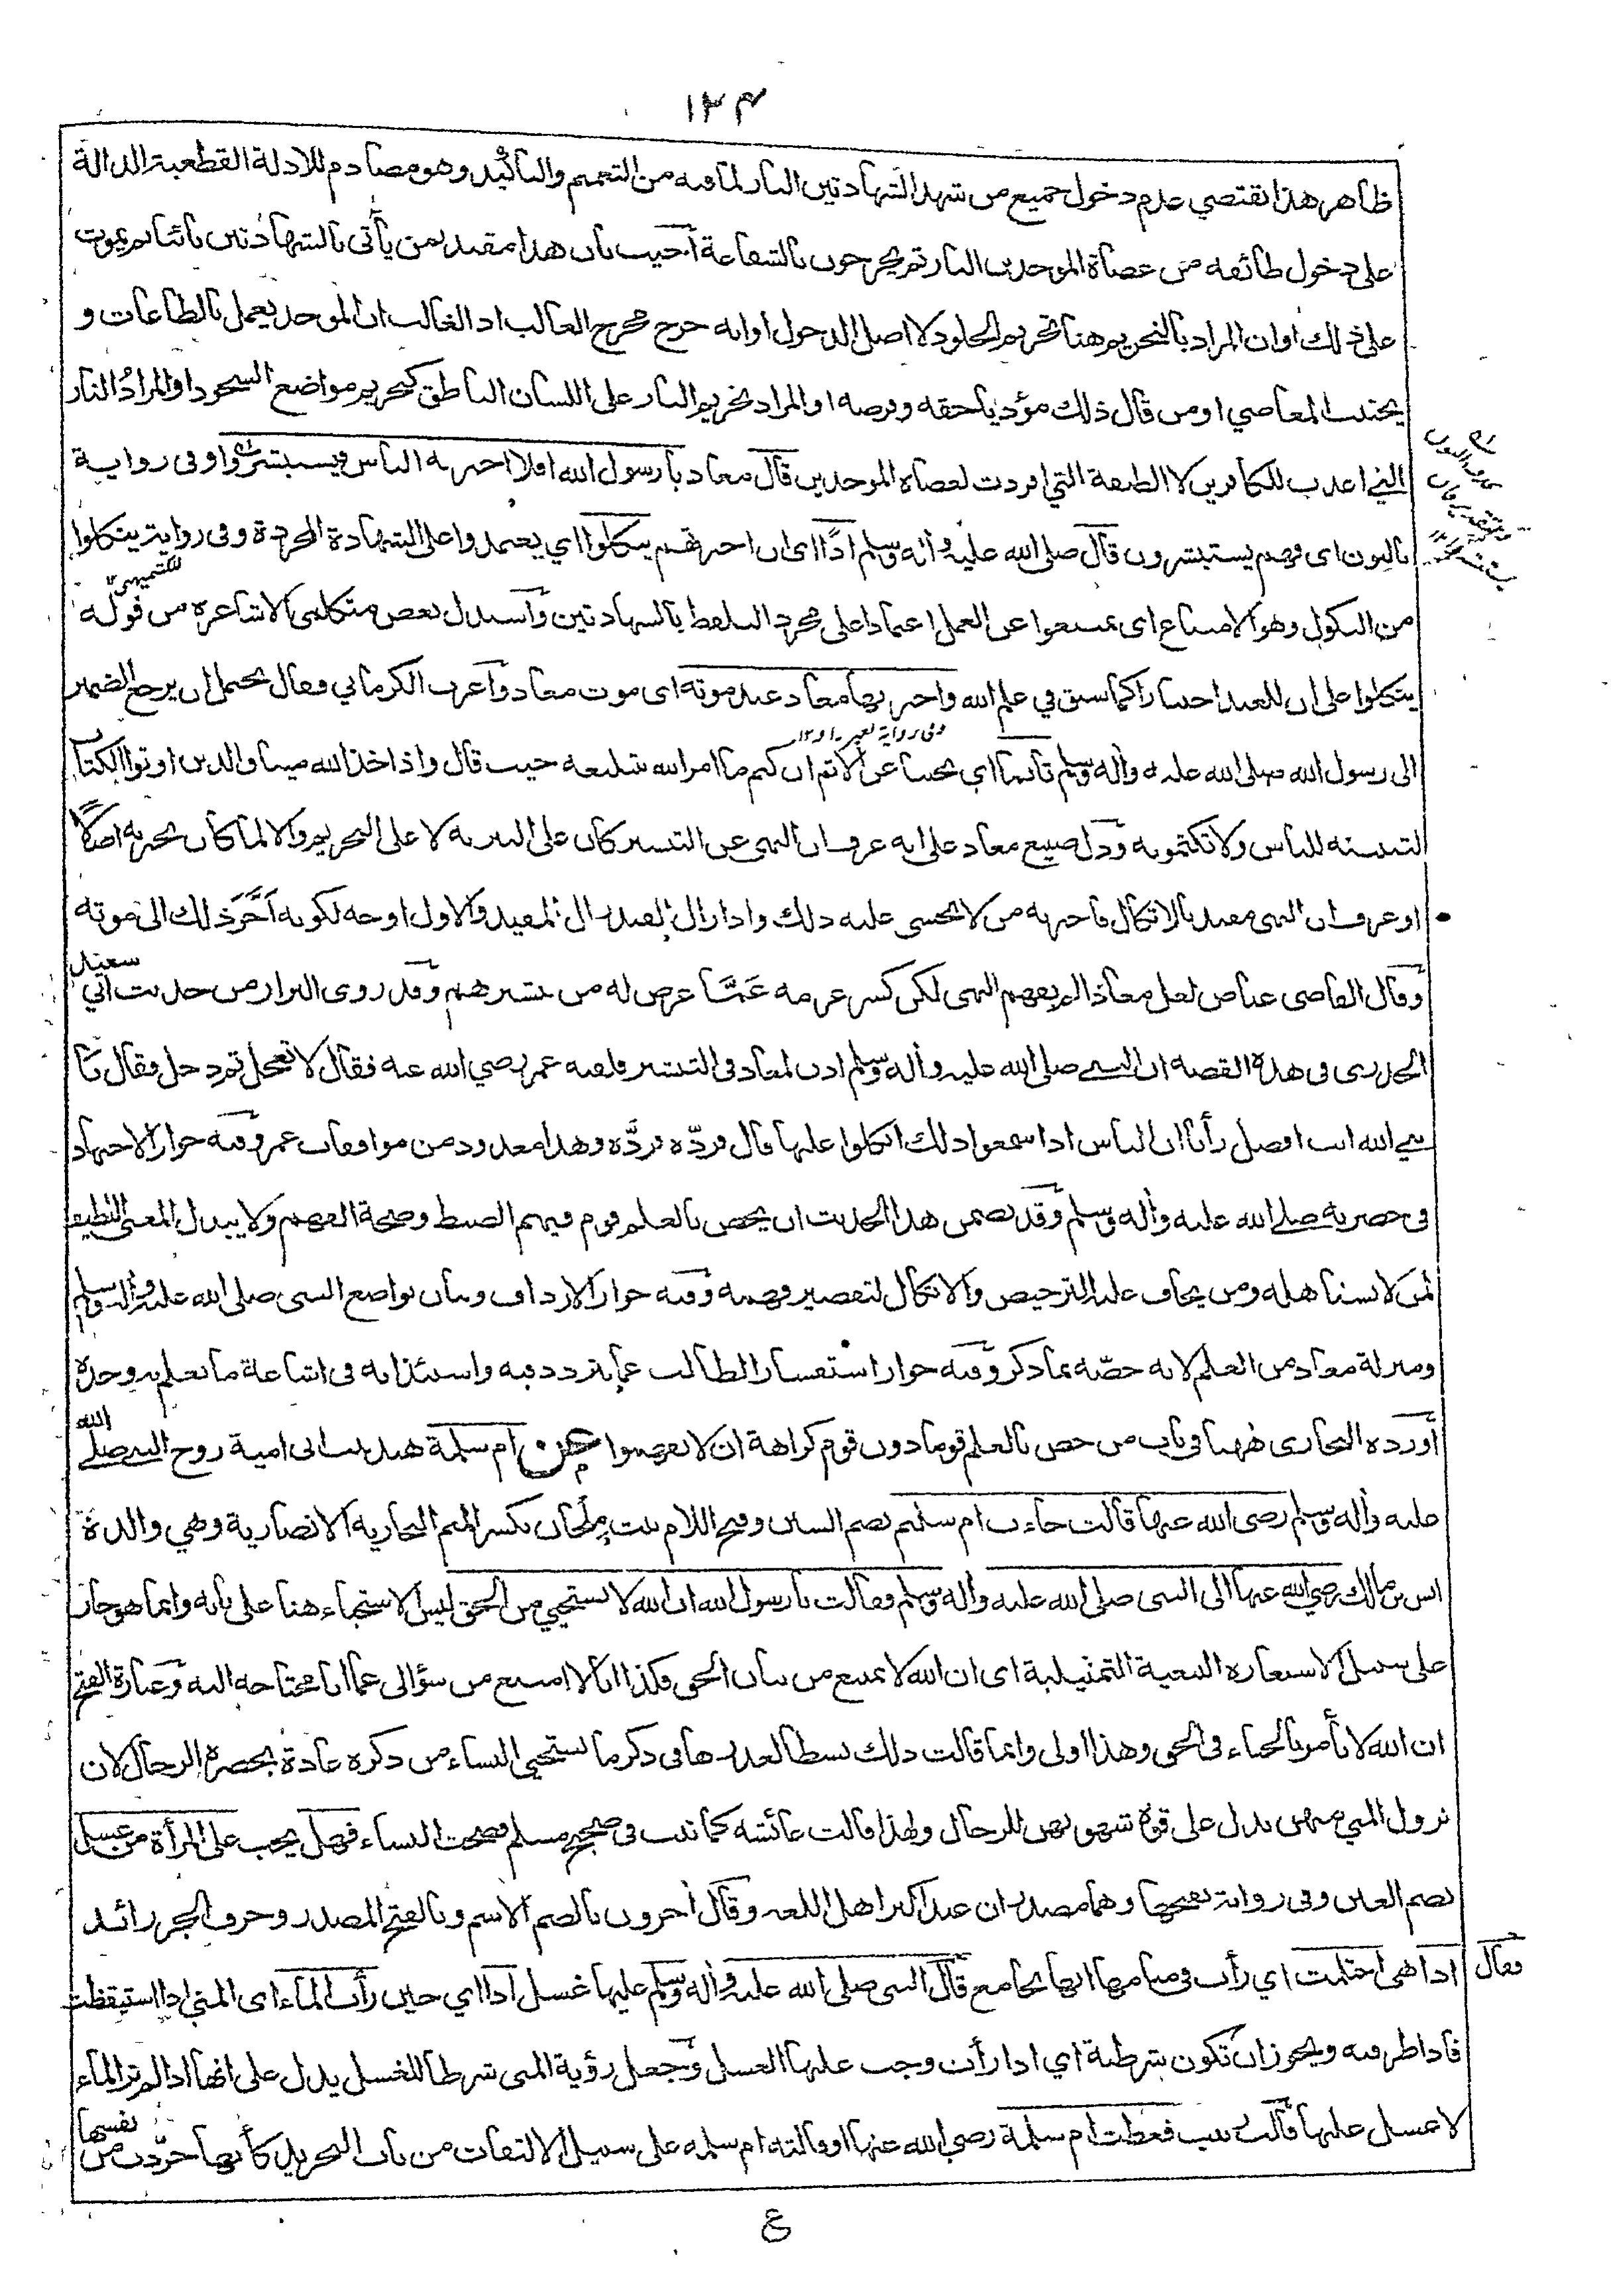 ١٣٤
ظاهر هذا يقتضي عدم دخول جميع من شهد الشهادتين النار لما فيه من التعميم والتأكيد وهو مصادم للادلة القطعية الدالة
على دخول طائفه من عصاة الموحدين النار ثم يخرجون بالشفاعة اجيب بان هذا مقيد بمن يأتى بالشهادتين تائبا ثم يموت
على ذلك او ان المراد بالتحريم هنا تحريم الخلود لا اصل الدخول او انه خرج مخرج الغالب اذ الغالب ان الموحد يعمل بالطاعات و
يجتنب المعاصي او من قال ذلك مؤديا حقه وفرضه او المراد تحريم النار على اللسان الناطق كتحريم مواضع السجود او المراد النار
التي اعدت للكافرين لا الطبقة التي افردت لعصاة الموحدين قال معاذ يا رسول الله افلا اخبر به الناس فيستبشروا وفى رواية
بالنون اى فهم يستبشرون قال صلى الله عليه وأله وسلم اذًا اى ان اخبرتهم يتكلوا اي يعتمدوا على الشهادة المجردة وفى رواية ينكلوا
للكشميهني
من النكول وهو الامتناع اى يمتنعوا عن العمل اعتمادا على مجرد التلفظ بالشهادتين وأستدل بعض متكلمى الاشاعره من قوله
يتكلوا على ان للعبد اختيارا كما سبق في علم الله واخبر بها معاذ عند موته اى موت معاذ وأغرب الكرماني فقال يحتمل ان يرجع الضمير
الى رسول الله صلى الله عليه وأله وسلم تأثما اي تجنبا عن الاثم ان كتم ما امر الله بتبليغه حيث قال واذ اخذ الله ميثاق الذين اوتوا الكتاب
لتبيننه للناس ولا تكتمونه ودل صنيع معاذ على انه عرف ان النهى عن التبشير كان على التنزيه لا على التحريم والا لما كان يخبر به اصلًا
او عرف ان النهى مقيد بالاتكال فاخبر به من لا يخشى عليه ذلك واذا زال القيد زال المقيد والاول اوجه لكونه أخَّر ذلك الى موته
وقال القاضى عياض لعل معاذا لم يفهم النهى لكن كسر عزمه عمَّا عرض له من تبشيرهم وقد روى البزار من حديث ابي سعيد
الخدرى فى هذه القصه ان النبي صلى الله عليه وأله وسلم اذن لمعاذ فى التبشير فلقيه عمر رضي الله عنه فقال لا تعجل ثم دخل فقال يا
نبي الله انت افضل رأيا ان الناس اذا سمعوا ذلك اتكلوا عليها قال فردّه فردَّه وهذا معدود من موافقات عمر وفيه جواز الاجتهاد
فى حضرته صلى الله عليه وأله وسلم وقد تضمن هذا الحديث ان يخص بالعلم قوم فيهم الضبط وصحة الفهم ولا يبذل المعنى اللطيف
لمن لا يستاهله ومن يخاف عليه الترخيص والاتكال لتقصير فهمه وفيه جواز الارداف وبيان تواضع النبى صلى الله عليه وأله وسلم
ومنزلة معاذ من العلم لانه خصّه بما ذكر وفيه جواز استفسار الطالب عما يتردد فيه واستئذانه فى اشاعة ما يعلم به وحده
أورده البخارى ههنا فى باب من خص بالعلم قوما دون قوم كراهة ان لا يفهموا عن ام سلمة هند بنت ابى امية زوج النبي صلى الله
عليه وأله وسلم رضى الله عنها قالت جاءت ام سليم بضم السين وفتح اللام بنت ملحان بكسر الميم النجاريه الانصارية وهي والدة
انس بن مالك رضي الله عنها الى النبى صلى الله عليه وأله وسلم فقالت يا رسول الله ان الله لا يستحيي من الحق ليس الاستحياء هنا على بابه وانما هو جار
على سبيل الاستعاره التبعية التمثيلية اى ان الله لا يمتنع من بيان الحق فكذا انا لا امتنع من سؤالى عما انا محتاجه اليه وعبارة الفتح
ان الله لا يأمر بالحياء فى الحق وهذا اولى وانما قالت ذلك بسطا لعذرها فى ذكر ما تستحيي النساء من ذكره عادة بحضرة الرجال لان
نزول المني منهن يدل على قوة شهوتهن للرجال ولهذا قالت عائشه كما ثبت فى صحيح مسلم فضحت النساء فهل يجب على المرأة من غسل
بضم الغين وفى رواية بفتحها وهما مصدران عند اكثر اهل اللغه وقال أخرون بالضم الاسم وبالفتح المصدر وحرف الجر زائد
اذا هى احتلمت اي رأت فى منامها انها تجامع قال النبى صلى الله عليه وأله وسلم عليها غسل اذا اي حين رأت الماء اى المني اذا استيقظت فقال
فاذا ظرفيه ويجوز ان تكون شرطية اي اذا رأت وجب عليها الغسل وجعل رؤية المنى شرطا للغسل يدل على انها اذا لم تر الماء
لا غسل عليها قالت زينب فغطت ام سلمة رضي الله عنها او قالته ام سلمه على سبيل الالتفات من باب التجريد كأنها جرّدت من نفسها